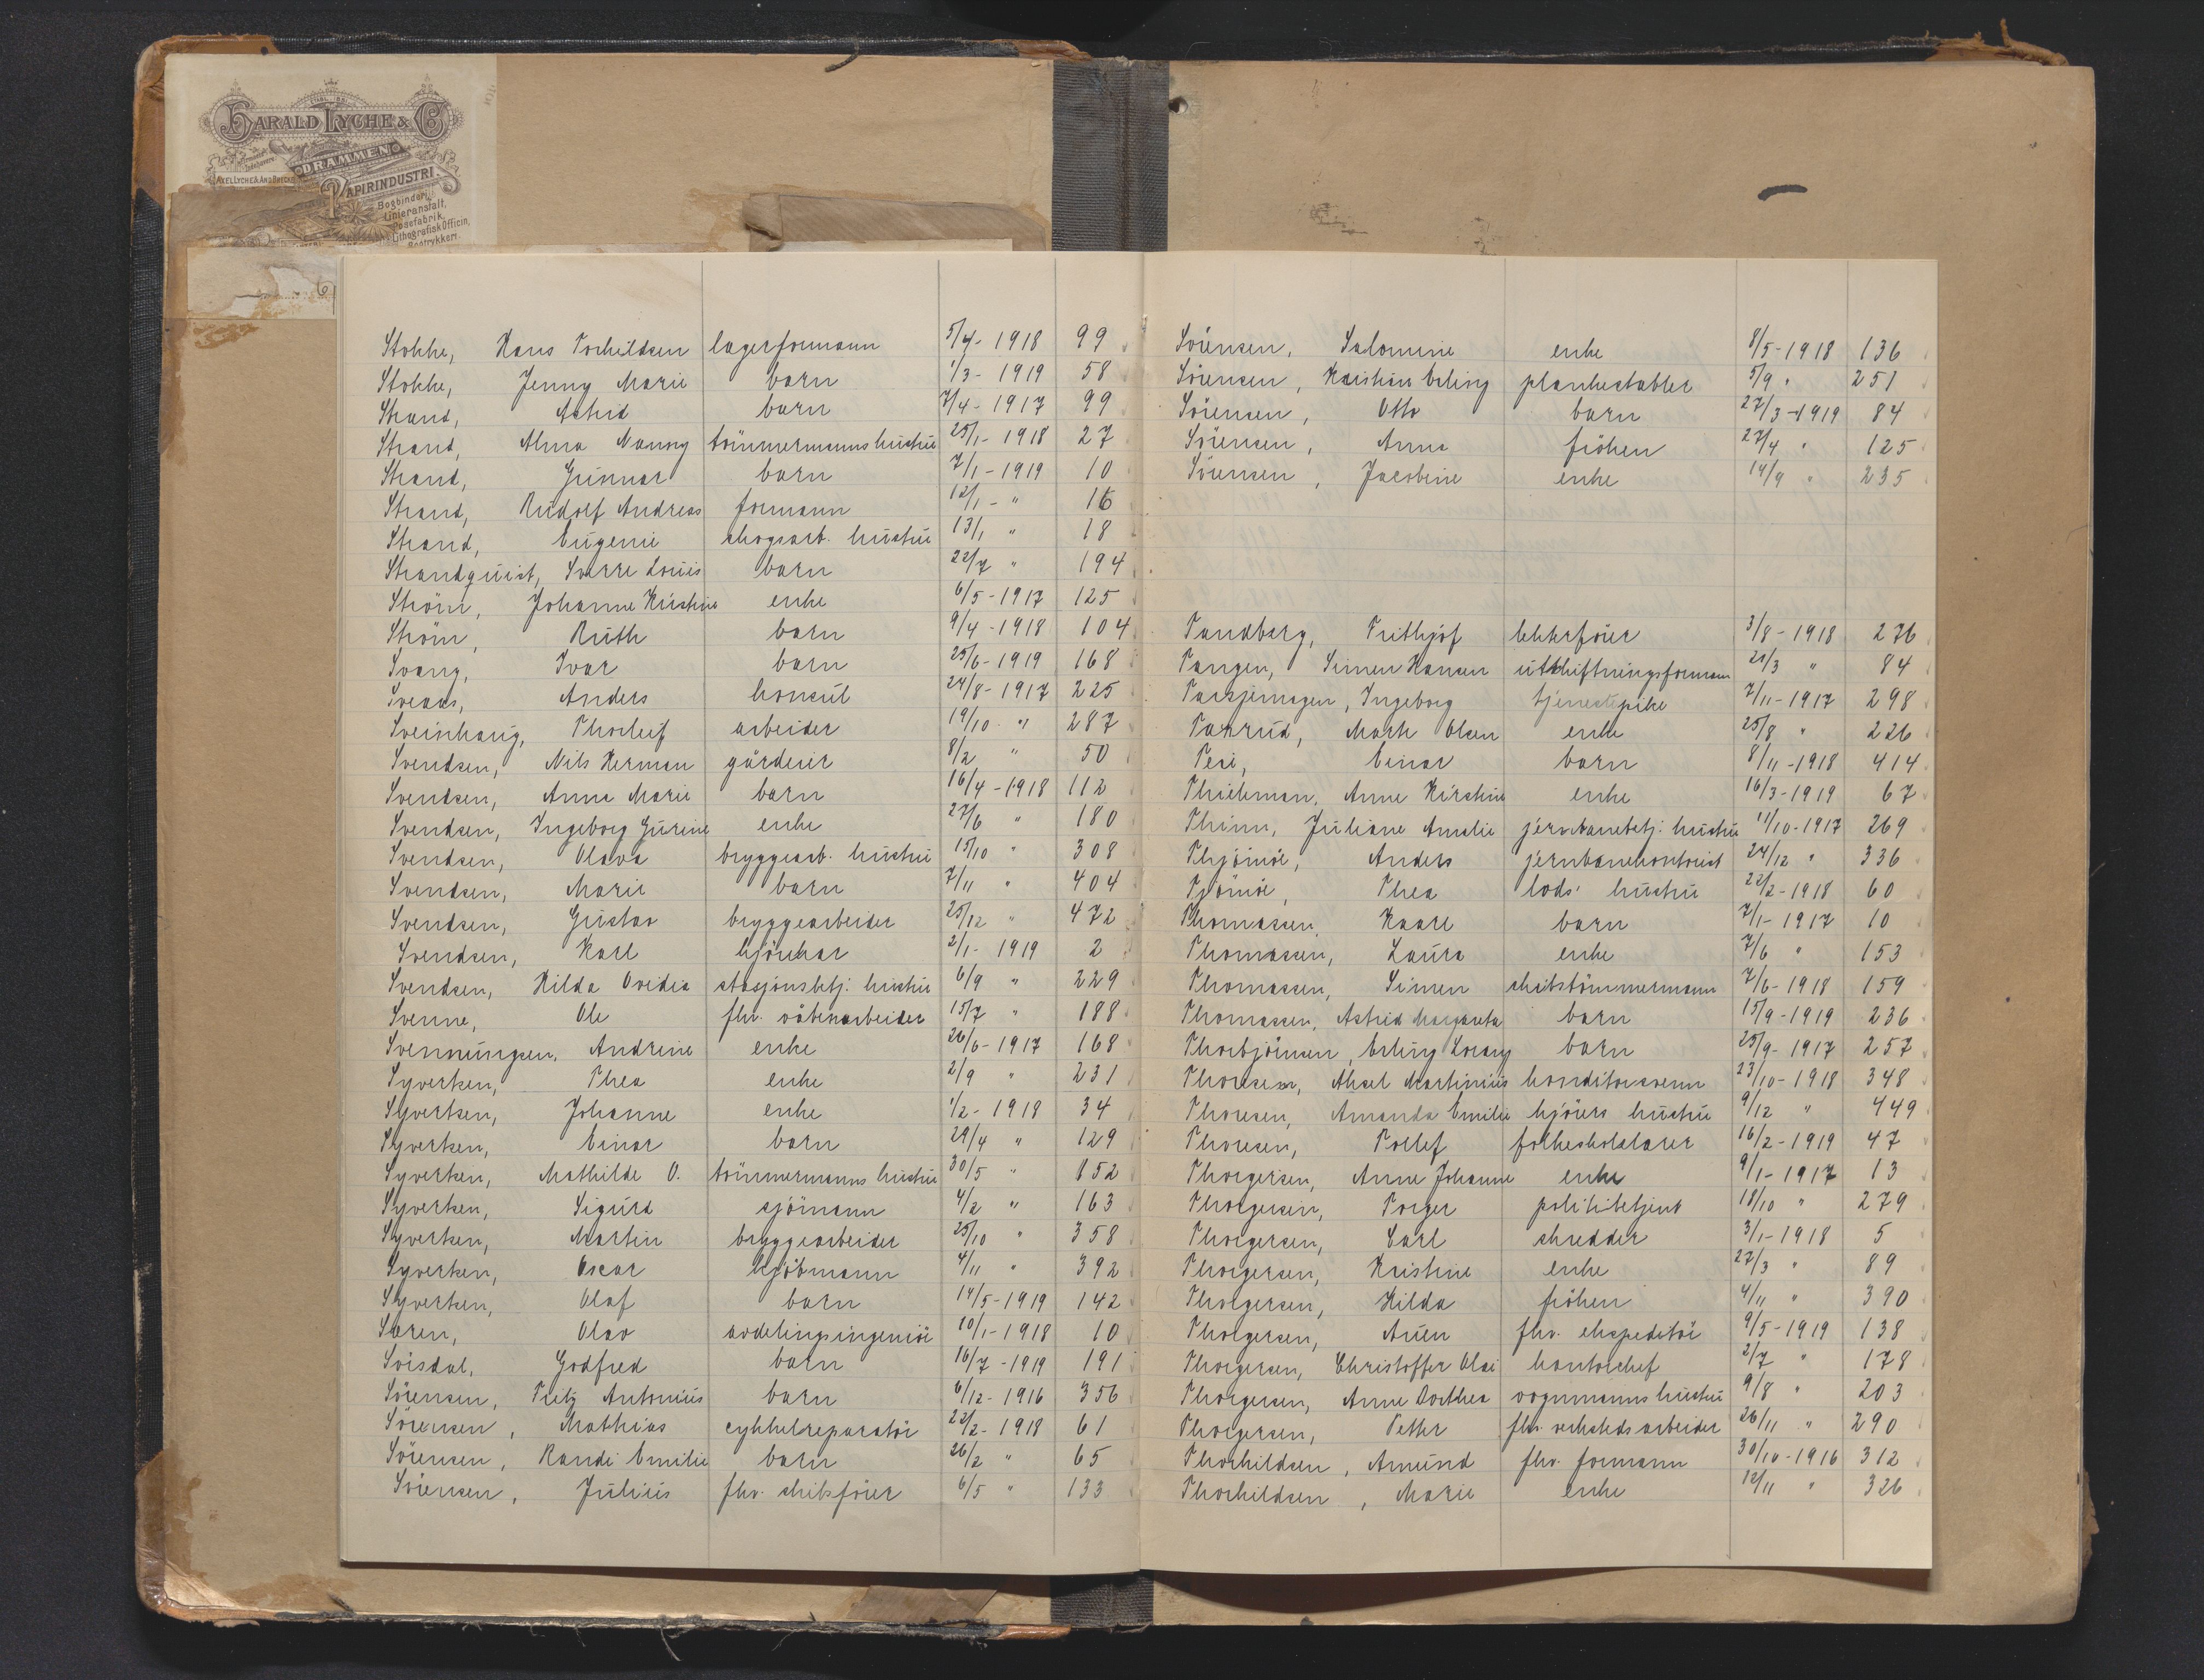 HARALD LYCHE & Co
DRAMMEN
PAPIRINDUSTRI.
Bogbinderi,
Linieranstalt,
Posefabrik,
Lithografisk Officin,
Bogtrykkeri
Stokke, Hans Torkildsen lagerformann 5/4 - 1918 99
Stokke, Jenny Marie barn 1/3 - 1919 58
Strand, Astrid barn 7/4 - 1917 99
Strand, Alma Nanny tömmermanns hustru 25/1 - 1918 27
Strand, Gunnar barn 7/1 - 1919 10
Strand, Rudolf Andreas formann 12/1 - " 16
Strand, Eugenie skogsarb. hustru 13/1 " 18
Strandquist, Sverre Louis barn 22/7 " 194
Ström, Johanne Kirstine enke 6/5 - 1917 125
Ström, Ruth barn 9/4 - 1918 104
Svang, Ivar barn 25/6 - 1919 168
Sveaas, Anders konsul 24/8 - 1917 225
Sveinhaug, Thorleif arbeider 19/10 - " 287
Svendsen, Nils Herman gårdeier 8/2 " 50
Svendsen, Anna Marie barn 16/4 - 1918 112
Svendsen, Ingeborg Gurine enke 27/6 " 180
Svendsen, Olava bryggearb. hustru 15/10 " 308
Svendsen, Marie barn 7/11 " 404
Svendsen, Gustav bryggearbeider 25/12 " 472
Svendsen, Karl kjörekar 2/1 - 1919 2
Svendsen, Hilda Ovidia stasjonsbetj. hustru 6/9 " 229
Svenne, Ole fhv. våbenarbeider 15/7 " 188
Svenningsen, Andrine enke 26/6 - 1917 168
Syvertsen, Thea enke 2/9 " 231
Syvertsen, Johanne enke 1/2 - 1918 34
Syvertsen, Einar barn 29/4 " 129
Syvertsen, Mathilde O. tömmermanns hustru 30/5 " 152
Syvertsen, Sigurd sjömann 4/2 " 163
Syvertsen, Martin bryggearbeider 25/10 " 358
Syvertsen, Oscar kjöbmann 4/11 " 392
Syvertsen, Olaf barn 14/5 - 1919 142
Søren, Olav avdelingsingeniör 10/1 - 1918 10
Sörsdal, Godfred barn 16/7 - 1919 191
Sörensen, Fritz Antonius barn 6/12 - 1916 356
Sörensen, Mathias cykkelreparatör 22/2 - 1918 61
Sörensen, Randi Emilie barn 26/2 " 65
Sörensen, Julius fhv. skibsförer 6/5 " 133
Sörensen, Salomine enke 8/5 - 1918 136
Sörensen, Kristian Erling plankestabler 5/9 " 251
Sörensen, Otto barn 27/3 - 1919 84
Sörensen, Anna fröken 27/4 " 125
Sörensen, Jacobine enke 14/9 " 235
Tandberg, Frithjof lekterförer 3/8 - 1918 276
Tangen, Simen Hansen utskiftningsformann 21/3 " 84
Ingeborg tjenestepike 7/11 - 1917 298
Marte Olsen enke 25/8 " 226
Einar barn 8/11 - 1918 414
Thieleman, Anne Kirstine enke 16/3 - 1919 67
Thinn, Juliane Amalie jernbanebetj. hustru 11/10 - 1917 269
Thjömöe, Anders jernbanekontorist 24/12 " 336
Tjömöe, Thea lods' hustru 22/2 - 1918 60
Thomassen, Kaare barn 7/1 - 1917 10
Thomassen, Laura enke 7/6 " 153
Thomassen, Simen skibstömmermann 7/6 - 1918 159
Thomassen, Astrid Margareta barn 15/9 - 1919 236
Thorbjörnsen, Erling Lorang barn 25/9 - 1917 257
Thoresen, Aksel Martinius konditorsvenn 23/10 - 1918 348
Thoresen, Amanda Emilie kjörers hustru 9/12 " 449
Thoresen, Tollef folkeskolelærer 16/2 - 1919 47
Thorgersen, Anne Johanne enke 9/1 - 1917 13
Thorgersen, Torger politibetjent 18/10 " 279
Thorgersen, Carl skredder 3/1 - 1918 5
Thorgersen, Kristine enke 27/3 " 89
Thorgersen, Hilda fröken 4/11 " 390
Thorgersen, fhv. ekspeditör 9/5 - 1919 138
Thorgersen, Christoffer Olai kontorchef 2/7 " 178
Thorgersen, Anne Dorthea vognmanns hustru 9/8 " 203
Thorgersen, Petter fhv. verkstedsarbeider 26/11 " 290
Thorkildsen, Amund fhv. formann 30/10 - 1916 312
Thorkildsen, Marie enke 12/11 " 326